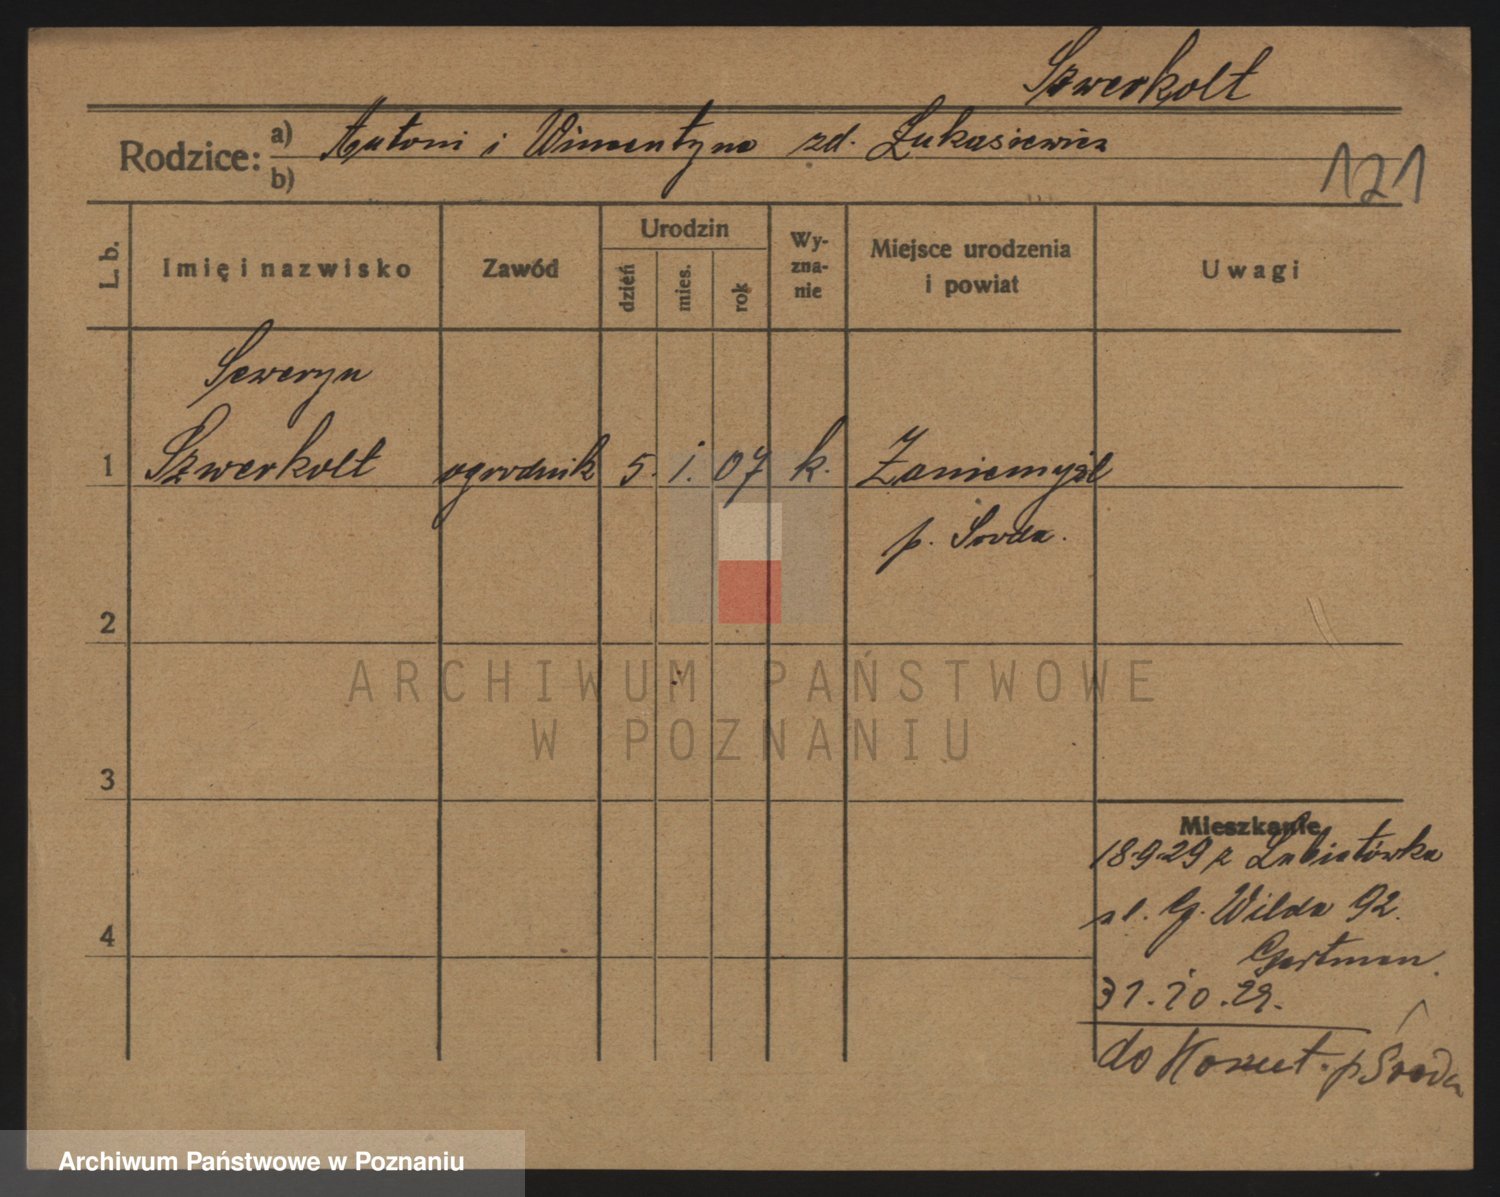 Szwerkolt
Rodzice: a) Antoni i Wincentyna zd. Łukasiewicz
b)
121
L. b.
Imię i nazwisko
Zawód
Urodzin
dzień
mies.
rok
Wy-
zna-
nie
Miejsce urodzenia
i powiat
Uwagi
Seweryn
1 Szwerkolt ogrodnik 5. 1. 07 k. Zaniemyśl
p. Środa.
2
ARCHIWUM PAŃSTWOWE
W POZNANIU
3
Mieszkanie
18-9-29 z Lubiatówka
ul. G. Wilda 92.
31.10.29.
4
do p Środa
Archiwum Państwowe w Poznaniu